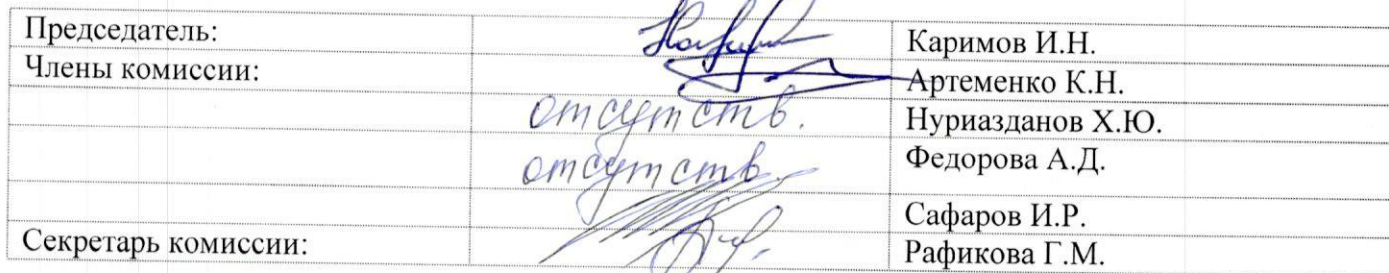 Председатель: Каримов И.Н.
Члены комиссии: Артеменко К.Н.
отсутств. Нуриазданов Х.Ю.
отсутств. Федорова А.Д.
Сафаров И.Р.
Секретарь комиссии: Рафикова Г.М.